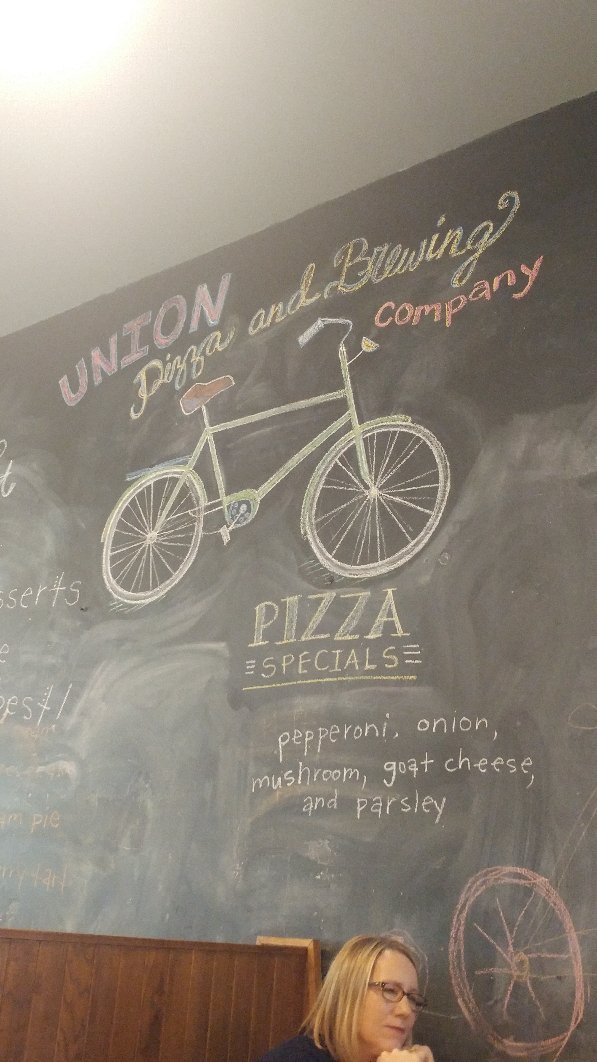 UNION
Pizza and Brewing
company
PIZZA
SPECIALS
pepperoni, onion,
mushroom, goat cheese,
and parsley
pie